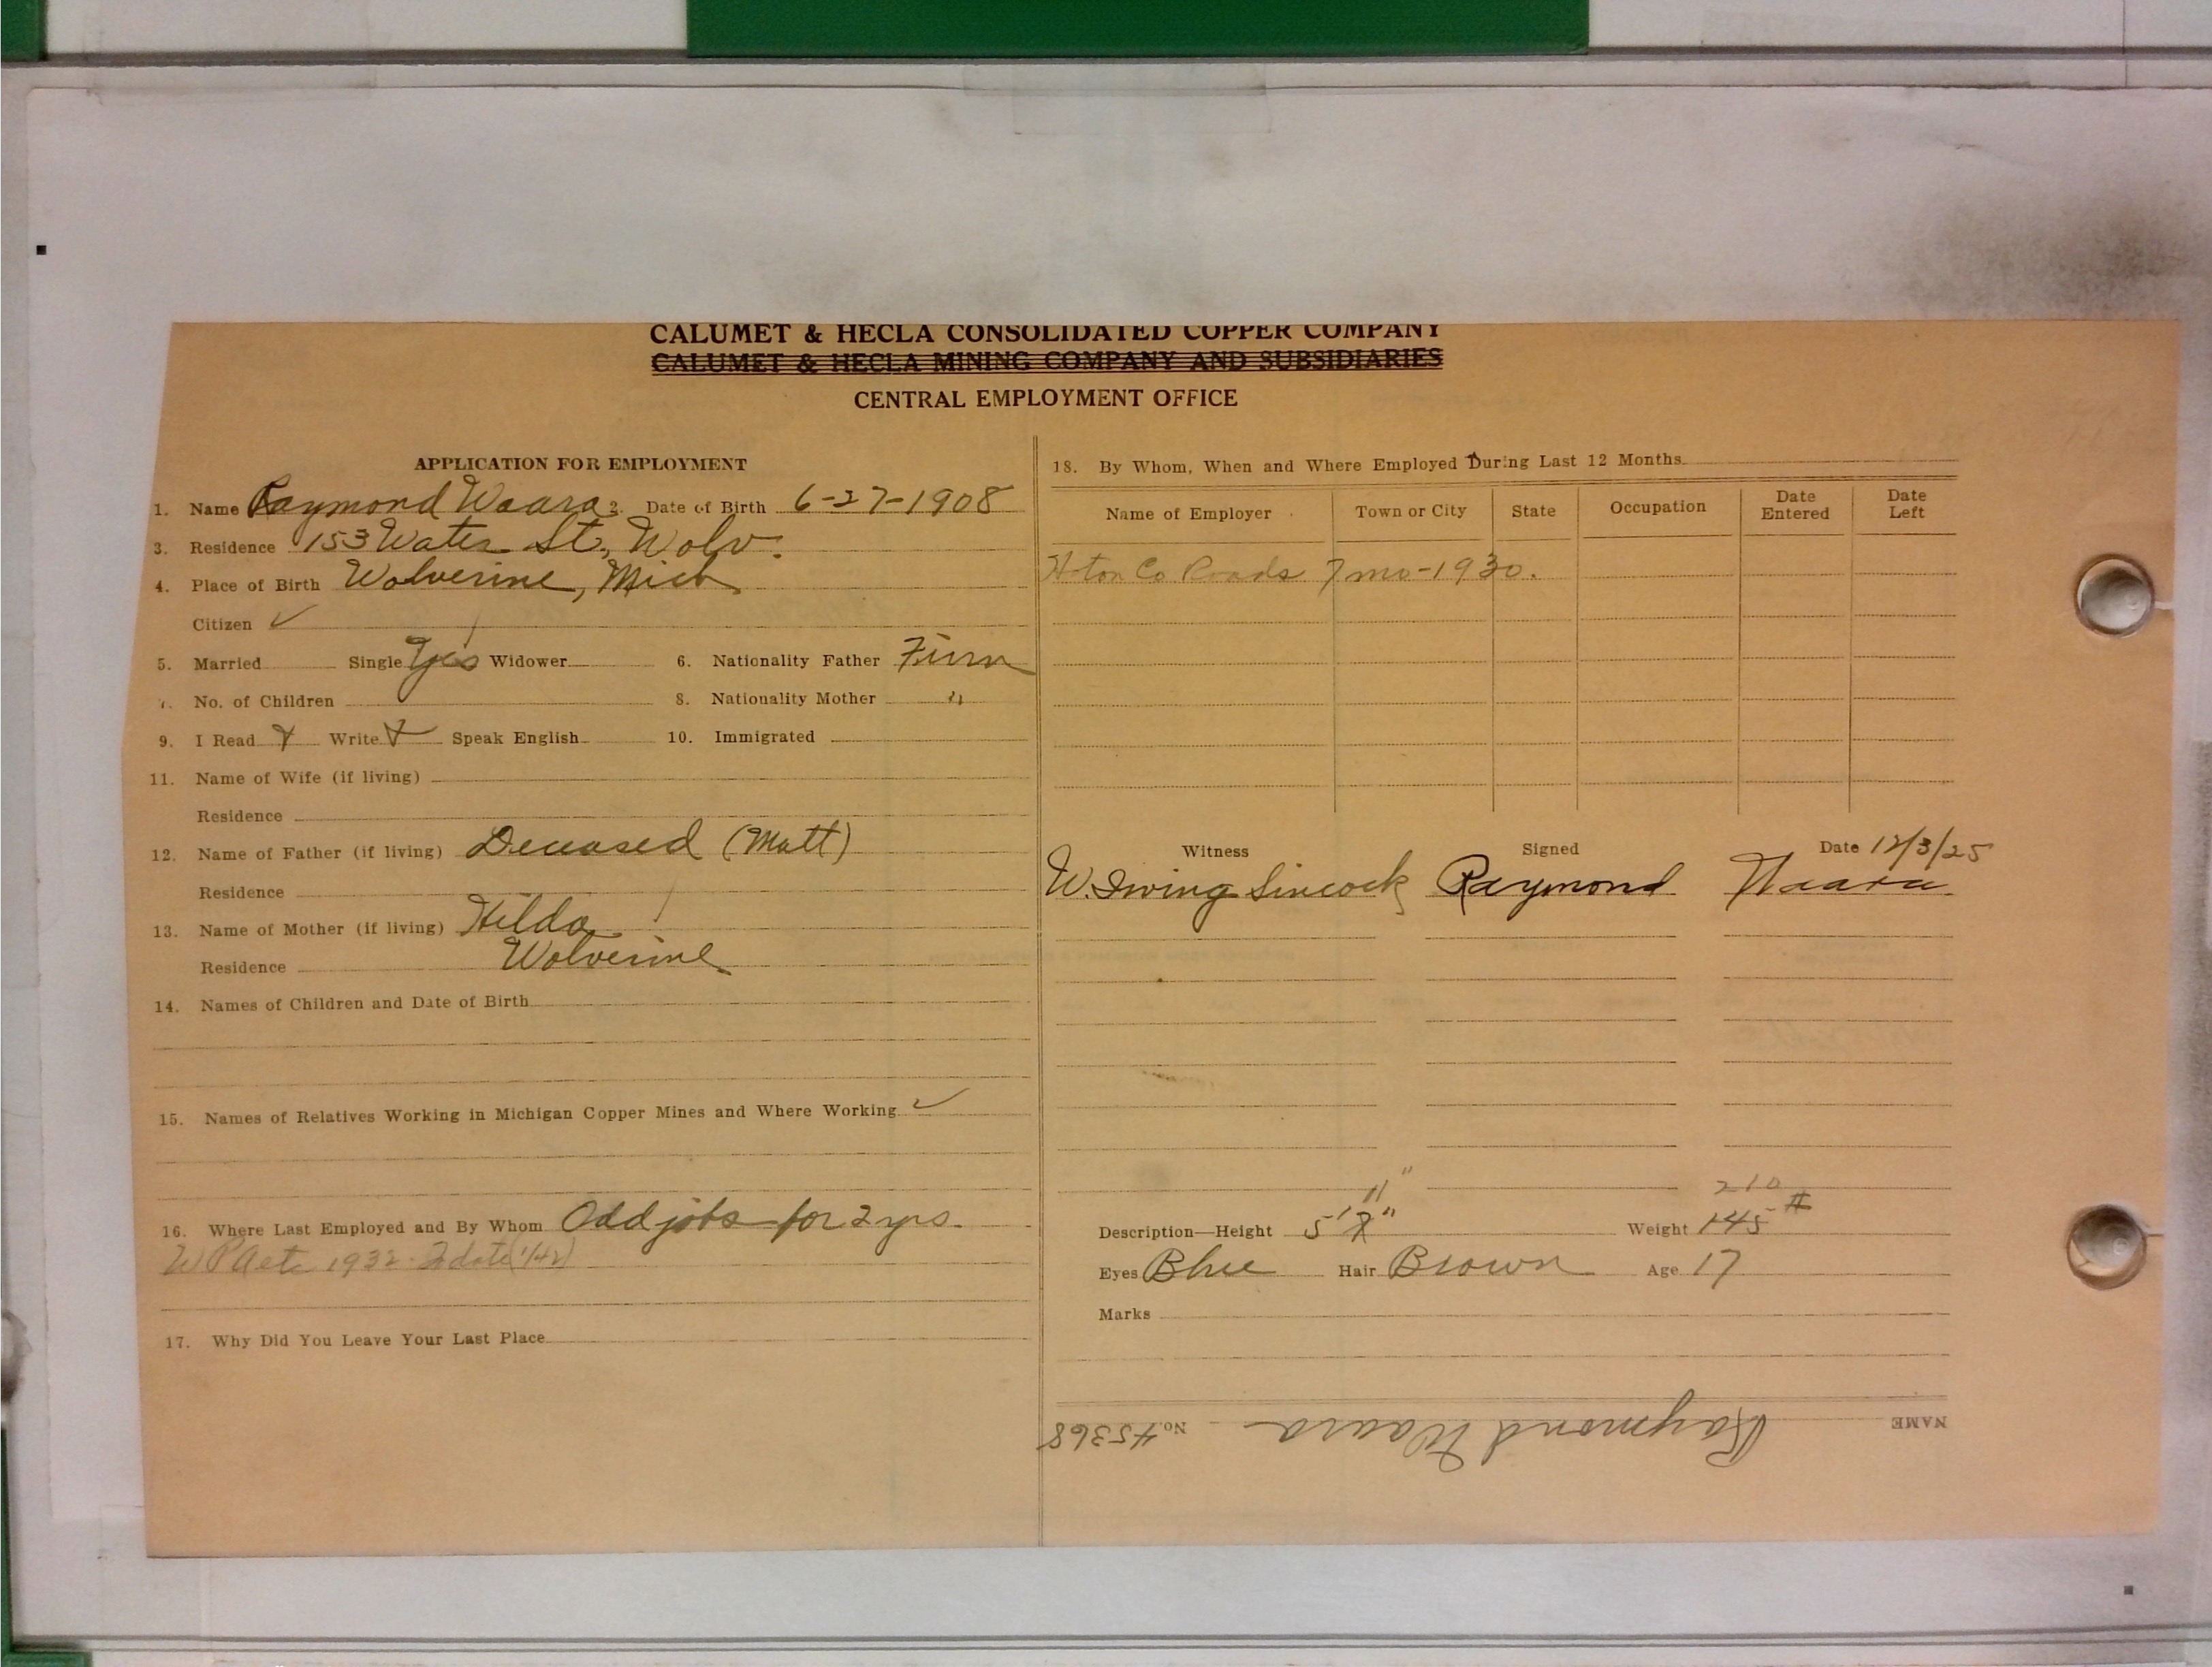 CALUMET & HECLA CONSOLIDATED COPPER COMPANY
CALUMET & HECLA MINING COMPANY AND SUBSIDIARIES
CENTRAL EMPLOYMENT OFFICE
APPLICATION FOR EMPLOYMENT
1. Name Raymond Waara 2. Date of Birth 6-27-1908
3. Residence 153 Water St., Wolv.
4. Place of Birth Wolverine, Mich
Citizen ✓
5. Married Single Yes Widower 6. Nationality Father Finn
7. No. of Children 8. Nationality Mother "
9. I Read Write Speak English 10. Immigrated
11. Name of Wife (if living)
Residence
12. Name of Father (if living) Deceased (Matt)
Residence
13. Name of Mother (if living) Hilda
Residence Wolverine
14. Names of Children and Date of Birth
15. Names of Relatives Working in Michigan Copper Mines and Where Working ✓
16. Where Last Employed and By Whom Odd jobs for 2 yrs.
1932
17. Why Did You Leave Your Last Place
18. By Whom, When and Where Employed During Last 12 Months
Name of Employer Town or City State Occupation Date Entered Date Left
Hton Co Roads 7 mo-1930.
Witness Signed Date 12/3/25
W. Irving Sincock Raymond Waara
11" 210
Description—Height 5' 7" Weight 145 #
Eyes Blue Hair Brown Age 17
Marks
NAME Raymond Waara No. 45368